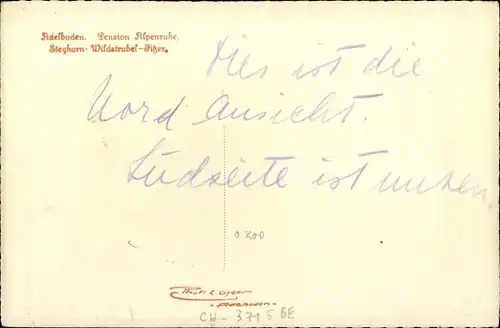 Adelboden. Pension Alpenruhe.
Steghorn-Wildstrubel-Fitzer.
Dies ist die
Nord Ansicht.
Südseite ist unten.
CH-3715 BE